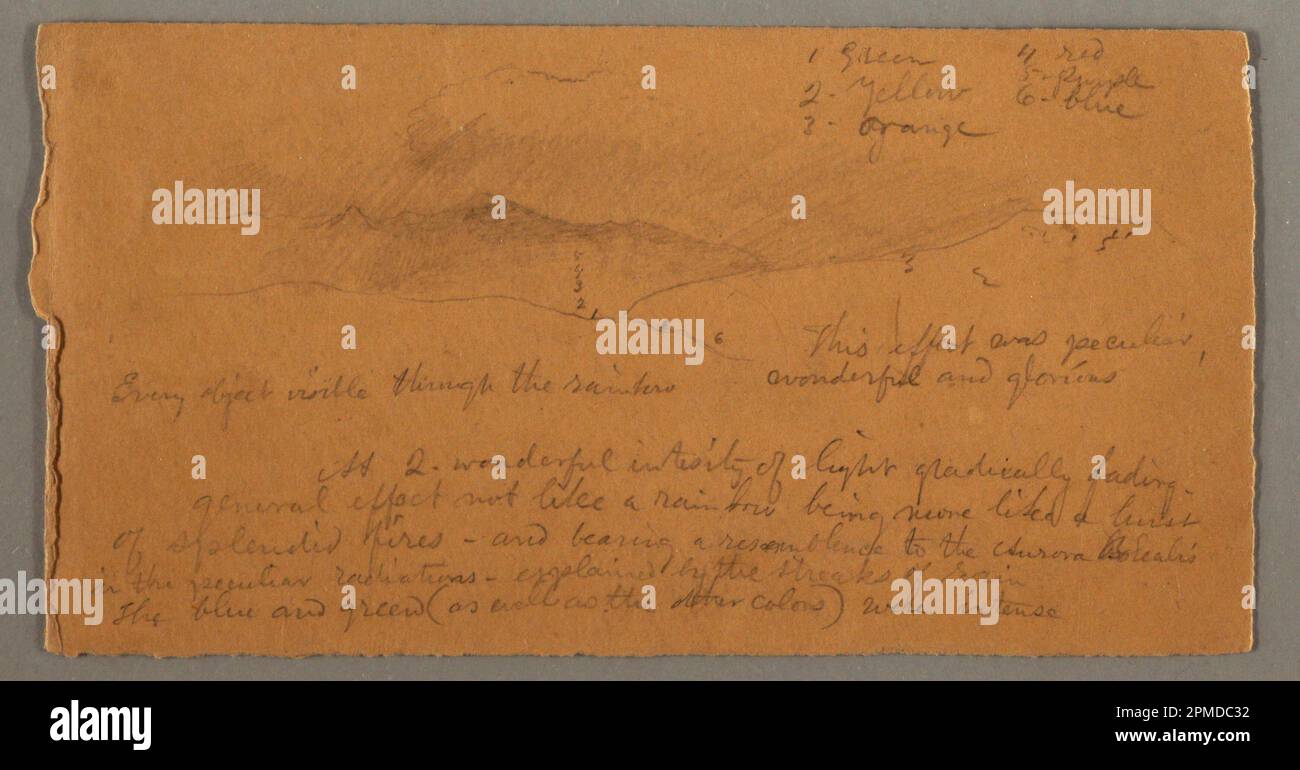 1 Green 4 red
2- Yellow 5- Purple
3- orange 6- blue
3
2
1
6
3
2
5
This effect was peculiar,
wonderful and glorious
Every object visible through the rainbow
At 2- wonderful intesity of light gradically fading-
general effect not like a rainbow being more like a burst
of splendid fires - and bearing a resemblence to the Aurora Borealis
in the peculiar radiations - explained by the streaks of rain
The blue and green (as well as the other colors) was intense
alamy
alamy
alamy
alamy
a
alamy
Image ID: 2PMDC32
www.alamy.com